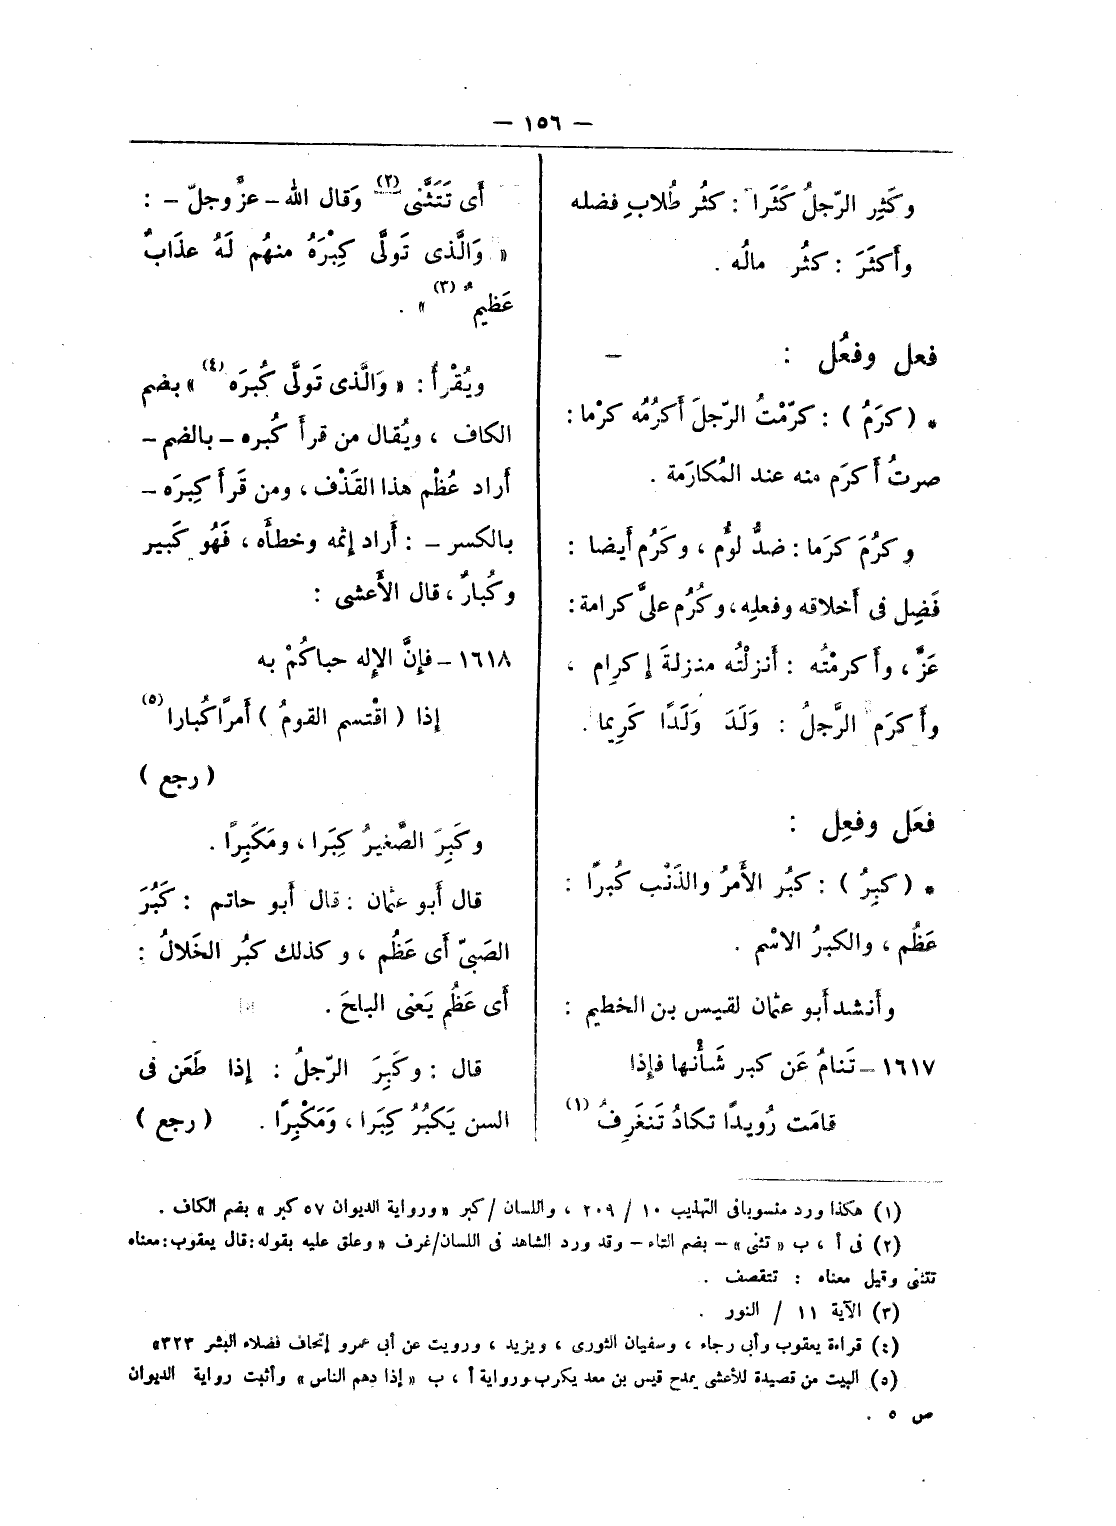 — ١٥٦ —
وكَثِر الرّجلُ كَثَرا : كثُر طُلابِ فضله
وأَكثَرَ : كثُر مالُه .
فعل وفعُل :
* ( كرَمُ ) : كرّمْتُ الرّجلَ أَكرُمُه كرْما :
صرتُ أَكرَم منه عند المُكارَمة .
وكرُمَ كرَما : ضدُّ لوُّم ، وكَرُم أَيضا :
فَضِل فى أَخلاقه وفعلِه ، وكُرُم علىَّ كرامة :
عَزَّ ، وأَكرمْتُه : أَنزلْتُه منزلةَ إكرِام ،
وأَكرَم الرَّجلُ : وَلَدَ وَلَدًا كَرِيما .
فعَل وفعِل :
* ( كبِرُ ) : كبُر الأَمرُ والذَنْب كُبرًا :
عَظُم ، والكبرُ الاسْم .
وأَنشد أَبو عثمان لقيس بن الخطيم :
١٦١٧ – تَنامُ عَن كبر شَأْنها فإِذا
قامَت رُويدًا تكادُ تَنغَرِفُ (١)
أَى تَتَثَّنى (٢) وَقال الله – عزَّ وجلّ – :
« وَالَّذى تَولَّى كِبْرَهُ منهُم لَهُ عذَابٌ
عَظيمٌ (٣) » .
ويُقْرأُ : « وَالَّذى تَولَّى كُبرَه (٤) » بضم
الكاف ، ويُقال من قرأَ كُبره – بالضم –
أَراد عُظْم هذا القَذْف ، ومن قَرأَ كِبرَه –
بالكسر – : أَراد إثمه وخطأَه ، فَهُو كَبير
وكُبارٌ ، قال الأَعشى :
١٦١٨ – فإِنَّ الإِله حباكُمْ به
إذا ( اقْتسم القومُ ) أَمرًا كُبارا (٥)
( رجع )
وكَبِرَ الصَّغيرُ كِبَرا ، ومَكَبِرًا .
قال أَبو عثمان : قال أَبو حاتم : كَبُرَ
الصَبىّ أَى عَظُم ، وكذلك كبُر الخَلالُ :
أَى عَظُم يَعنى البلحَ .
قال : وكَبِرَ الرّجلُ : إذا طَعَن فى
السن يَكبُرُ كِبَرا ، وَمَكْبِرًا . ( رجع )
(١) هكذا ورد منسوبا فى التهذيب ١٠ / ٢٠٩ ، واللسان / كبر « ورواية الديوان ٥٧ كبر » بضم الكاف .
(٢) فى أ ، ب « تثنى » – بضم التاء – وقد ورد الشاهد فى اللسان/غرف « وعلق عليه بقوله : قال يعقوب : معناه
تتثنى وقيل معناه : تتقصف .
(٣) الآية ١١ / النور .
(٤) قراءة يعقوب وأبى رجاء ، وسفيان الثورى ، ويزيد ، ورويت عن أبى عمرو إتحاف فضلاء البشر ٣٢٣»
(٥) البيت من قصيدة للأعشى يمدح قيس بن معد يكرب ورواية أ ، ب « إذا دهم الناس » وأثبت رواية الديوان
ص ٥ .